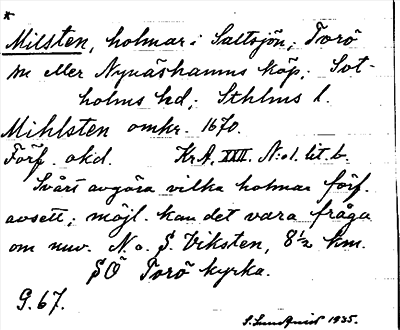 *
Milsten, holmar i Saltsjön; Torö
sn eller Nynäshamns köp; Sot-
holms hd; Sthlms l.
Mihlsten omkr. 1670.
Förf. okd. Kr A, XXII. N:o 1. lit. b.
Svårt avgöra vilka holmar förf.
avsett; möjl. kan det vara fråga
om nuv. N. o. S. Viksten, 8½ km.
SÖ Torö kyrka.
G. 67.
S. Lundquist 1935.